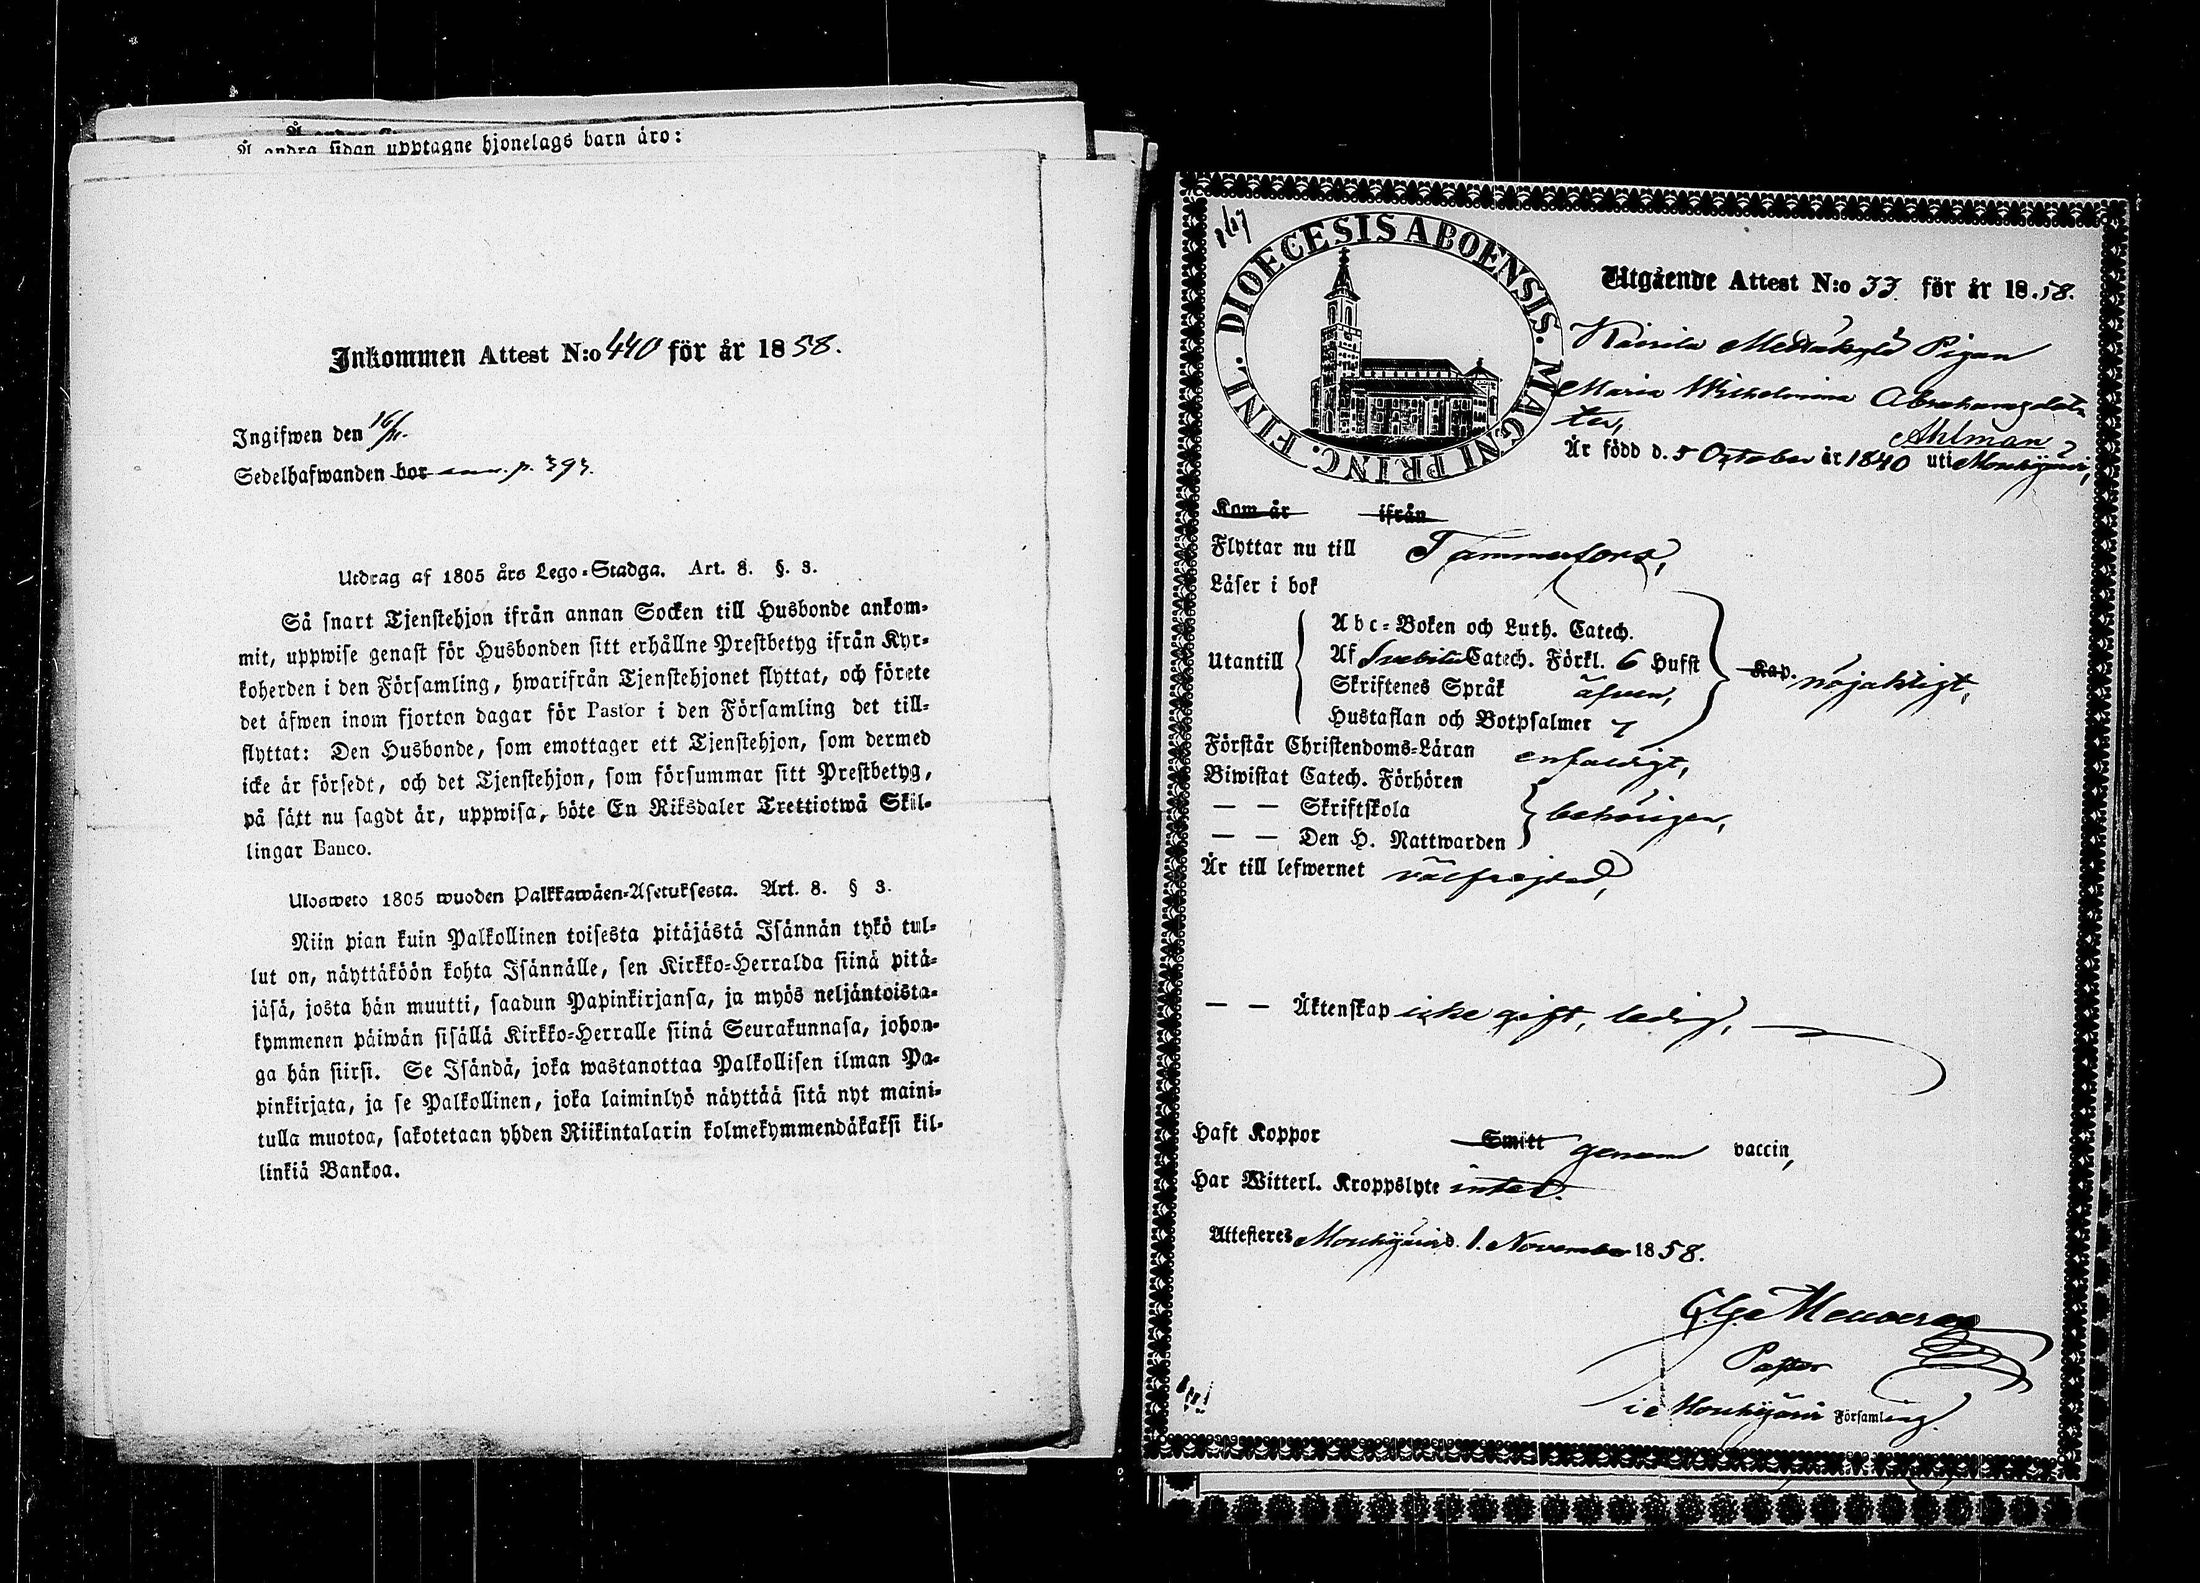 Å andra sidan upptagne hjonelags barn äro:
Inkommen Attest N:o 440 för år 1858.
Ingifwen den 16/11.
Sedelhafwanden bor p. 393.
Utdrag af 1805 års Lego-Stadga. Art. 8. §. 3.
Så snart Tjenstehjon ifrån annan Socken till Husbonde ankom-
mit, uppwise genast för Husbonden sitt erhållne Prestbetyg ifrån Kyr-
koherden i den Församling, hwarifrån Tjenstehjonet flyttat, och förete
det äfwen inom fjorton dagar för Pastor i den Församling det till-
flyttat: Den Husbonde, som emottager ett Tjenstehjon, som dermed
icke är försedt, och det Tjenstehjon, som försummar sitt Prestbetyg,
på sätt nu sagdt är, uppwisa, böte En Riksdaler Trettiotwå Skil-
lingar Banco.
Ulosweto 1805 wuoden Palkkawäen-Asetuksesta. Art. 8. § 3.
Niin pian kuin Palkollinen toisesta pitäjästä Isännän tykö tul-
lut on, näyttäköön kohta Isännälle, sen Kirkko-Herralda siinä pitä-
jäsä, josta hän muutti, saadun Papinkirjansa, ja myös neljäntoista-
kymmenen päiwän sisällä Kirkko-Herralle siinä Seurakunnasa, johon-
ga hän siirsi. Se Isändä, joka wastanottaa Palkollisen ilman Pa-
pinkirjata, ja se Palkollinen, joka laiminlyö näyttää sitä nyt maini-
tulla muotoa, sakotetaan yhden Riikintalarin kolmekymmendäkaksi kil-
linkiä Bankoa.
DIOECESIS ABOENSIS. MAGNI PRINC. FINL.
Utgående Attest N:o 33 för år 1858.
Pigan
Maria Wilhelmina Abrahamsdot
ter,
Ahlman
Är född d. 5 October år 1840 uti Mouhijärvi,
Kom år ifrån
Flyttar nu till Tammerfors,
Läser i bok
Abc-Boken och Luth. Catech.
Utantill Af Svebilii Catech. Förkl. 6 Hufst Kap. nöjaktigt,
Skriftenes Språk äfven,
Hustaflan och Botpsalmer 7
Förstår Christendoms-Läran enfaldigt,
Biwistat Catech. Förhören
— — Skriftskola behörigen,
— — Den H. Nattwarden
Är till lefwernet välfrejdad,
— — Äktenskap icke gift, ledig,
Haft Koppor Smitt genom vaccin,
Har Witterl. Kroppslyte intet.
Attesteres Mouhijärvi d. 1. November 1858.
Pastor
i Mouhijärvi Församling.